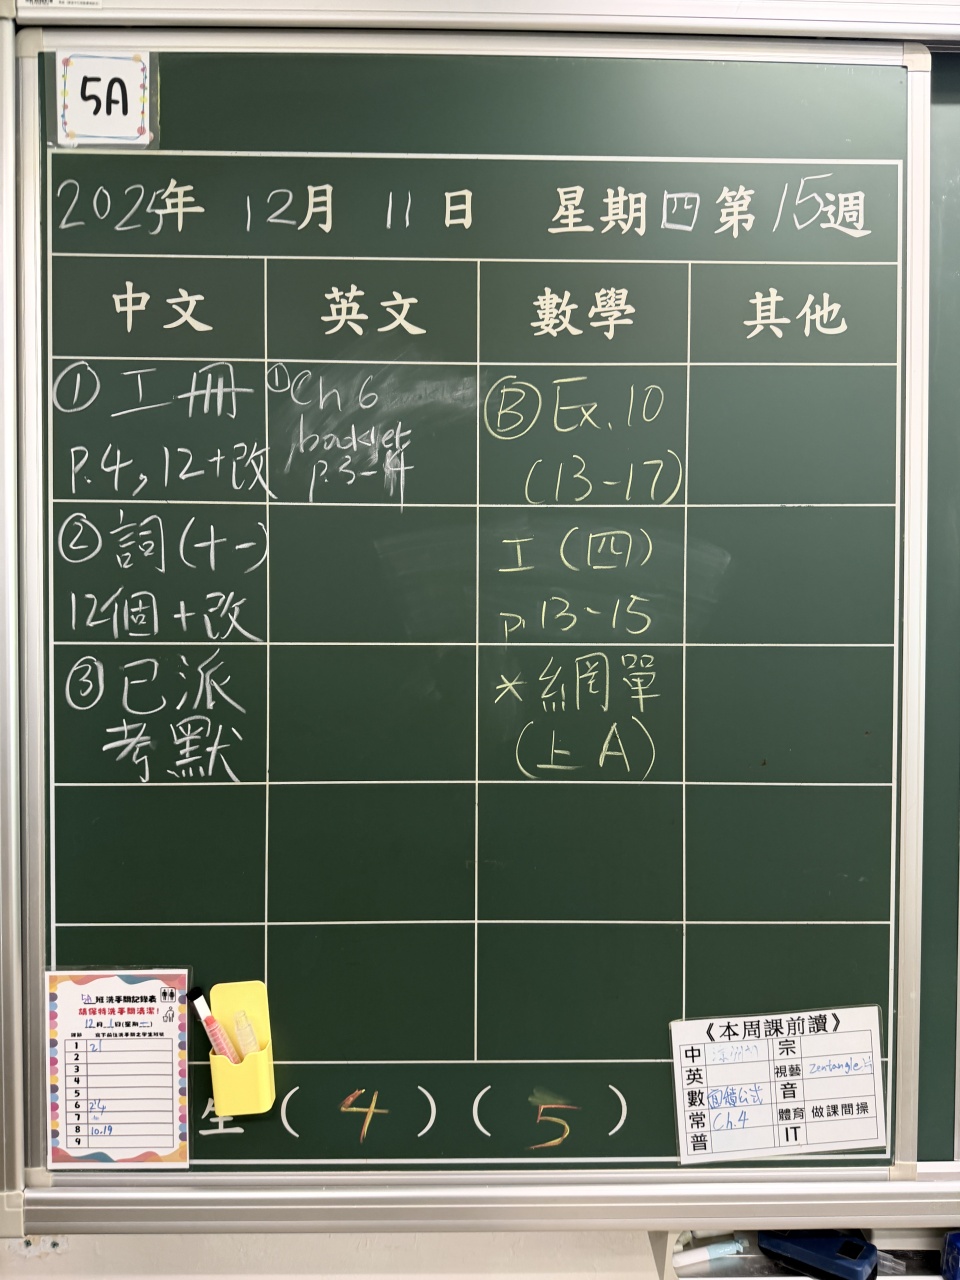 5A
2025年 12月 11日 星期四第15週
中文 英文 數學 其他
① 工冊
P.4, 12+改
② 詞(十一)
12個+改
③ 已派
考默
① Ch 6
booklet
p.3-4
Ⓑ Ex. 10
(13-17)
工(四)
p.13-15
*網單
(上A)
5A班洗手間記錄表
請保持洗手間清潔!
12月1日(星期一)
1 21
2
3
4
5
6 24
7
8 10.19
9
生(4)(5)
《本周課前讀》
中
英
數 圓錐公式
常 Ch.4
普
宗
視藝 Zentangle
音
體育 做課間操
IT